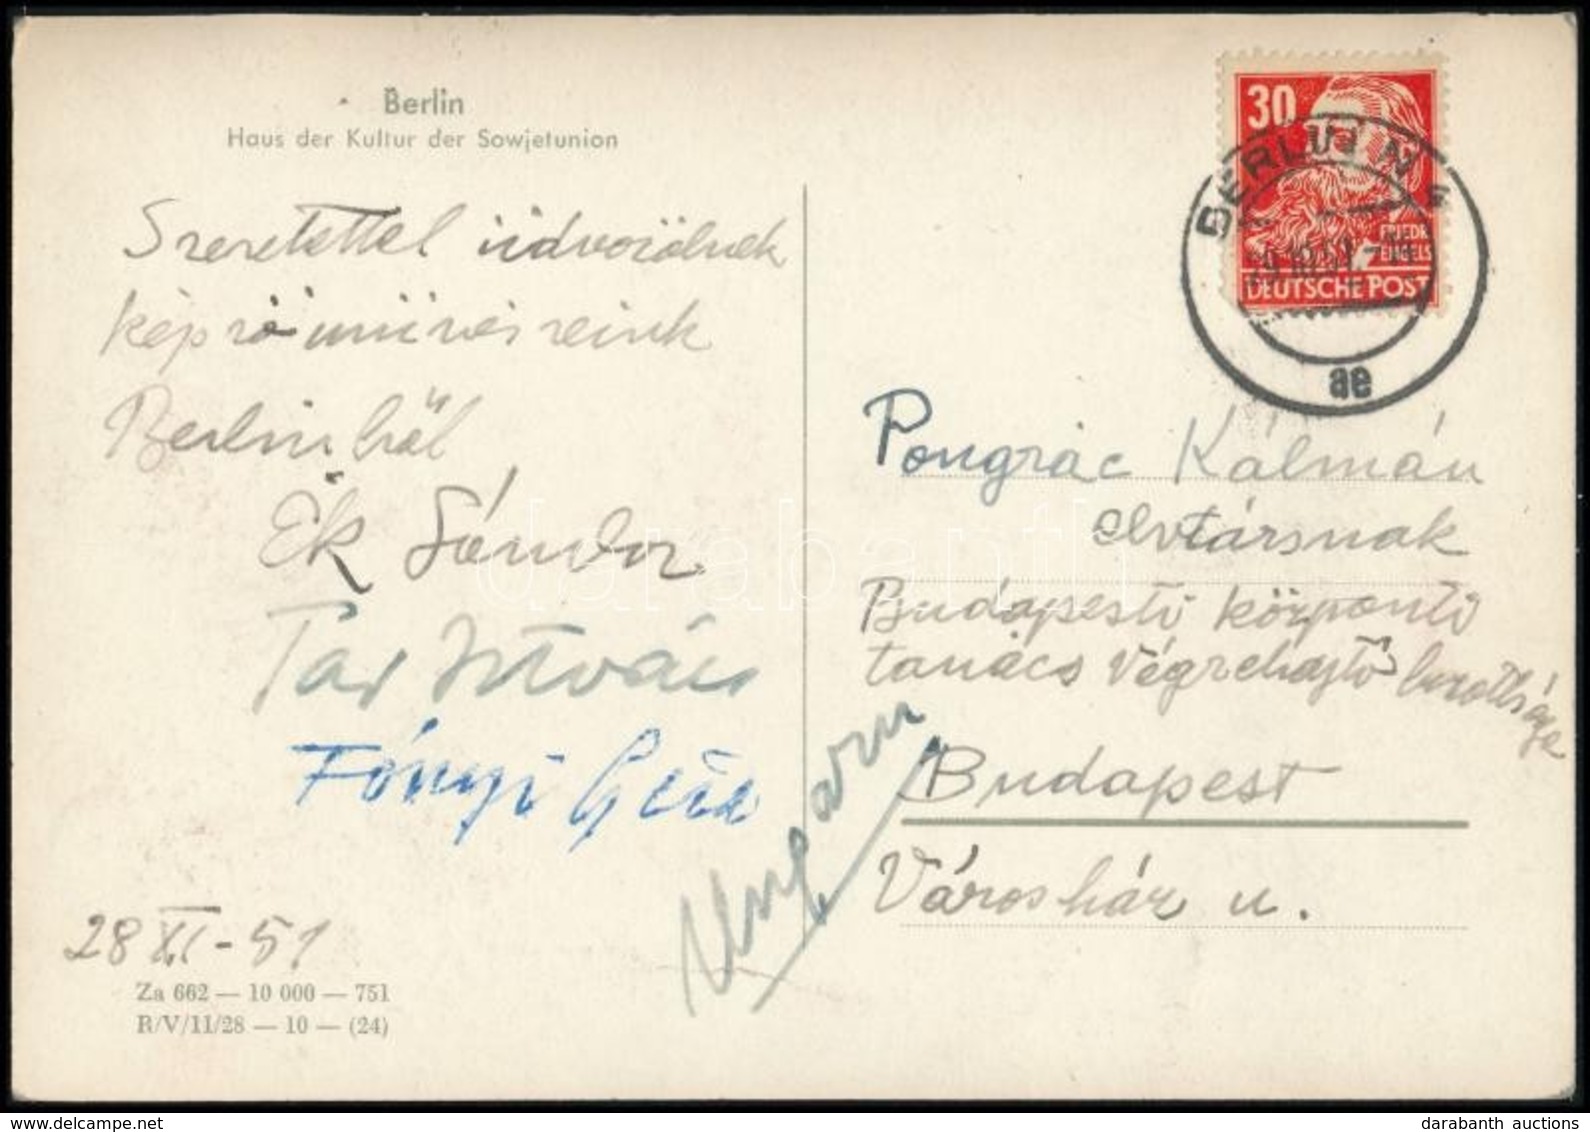 Berlin
Haus der Kultur der Sowjetunion
Szeretettel üdvözölnek
képzőművészeink
Berlinből
Ék Sándor
Tar István
Fónyi Géza
28 XI - 51
Za 662 — 10 000 — 751
R/V/11/28 — 10 — (24)
30
FRIEDR.
ENGELS
DEUTSCHE POST
BERLIN N 4
ae
Pongrác Kálmán
elvtársnak
Budapesti központi
tanács végrehajtó bizottsága
Budapest
Városház u.
Ungarn
darabanth
darabanth auctions